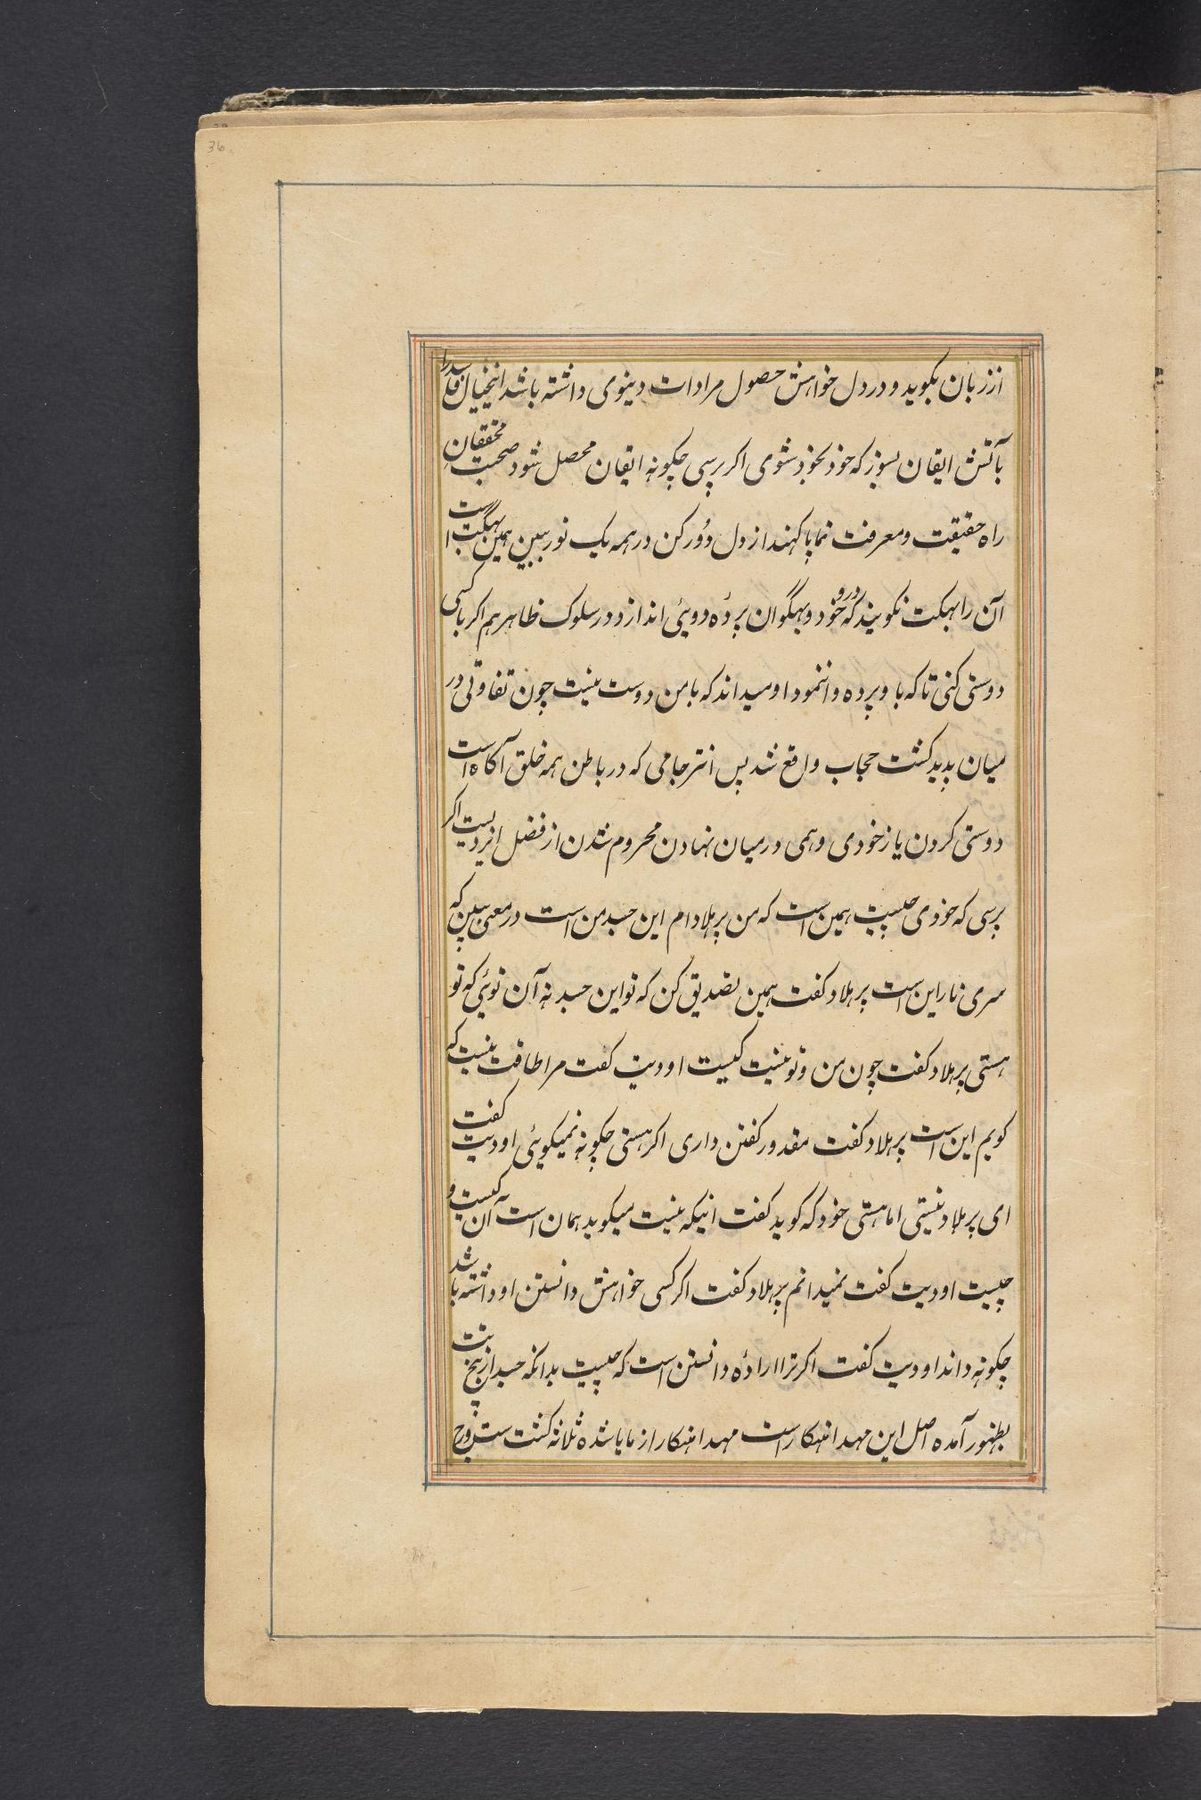 36
از زبان بکوید و در دل خواهش حصول مرادات دینوی داشته باشد اینخیال فاسد را
بآتش ایقان بسوز که خود بخود شوی اکر پرسی چکونه ایقان محصل شود صحبت محققان
راه حقیقت و معرفت نماپا کهند از دل دور کن در همه یک نور ببین همین بهگت است
آن را بهکت نکویند که در خود و بهگوان پردهٔ دویئی اندازد در سلوک ظاهر هم اکر با کسی
دوستی کنی تا که با و پرده وا ننمود او میداند که با من دوست نیست چون تفاوتی در
میان پدید کشت حجاب واقع شد پس انترجامی که در باطن همه خلق آکاه است
دوستی کردن یا ز خودی وهمی در میان نهادن محروم شدن از فضل ایزدیست اکر
پرسی که خودی چیست همین است که من پرهلاد ام این جسد من است در معنی ببین که
سری ناراین است پرهلاد کفت همین تصدیق کن که تو این جسد نهٔ آن توئی که تو
هستی پرهلاد کفت چون من و تو نیست کیست اودیت کفت مرا طاقت نیست که
کویم این است پرهلاد کفت مقدور کفتن داری اکر هستی چکونه نمیکوئی اودیت کفت
ای پرهلاد نیستی اما هستی خود که کوید کفت انیکه نیست میکوید همان است آن کیست و
چیست اودیت کفت نمیدانم پرهلاد کفت اکر کسی خواهش دانستن او داشته باشد
چکونه داند اودیت کفت اکر ترا ارادهٔ دانستن است که چیست بدانکه جسد از پنج تت
بظهور آمده اصل این مهد اهنکار است مهد اهنکار از مایا شده ثلانه کشت ست و رج